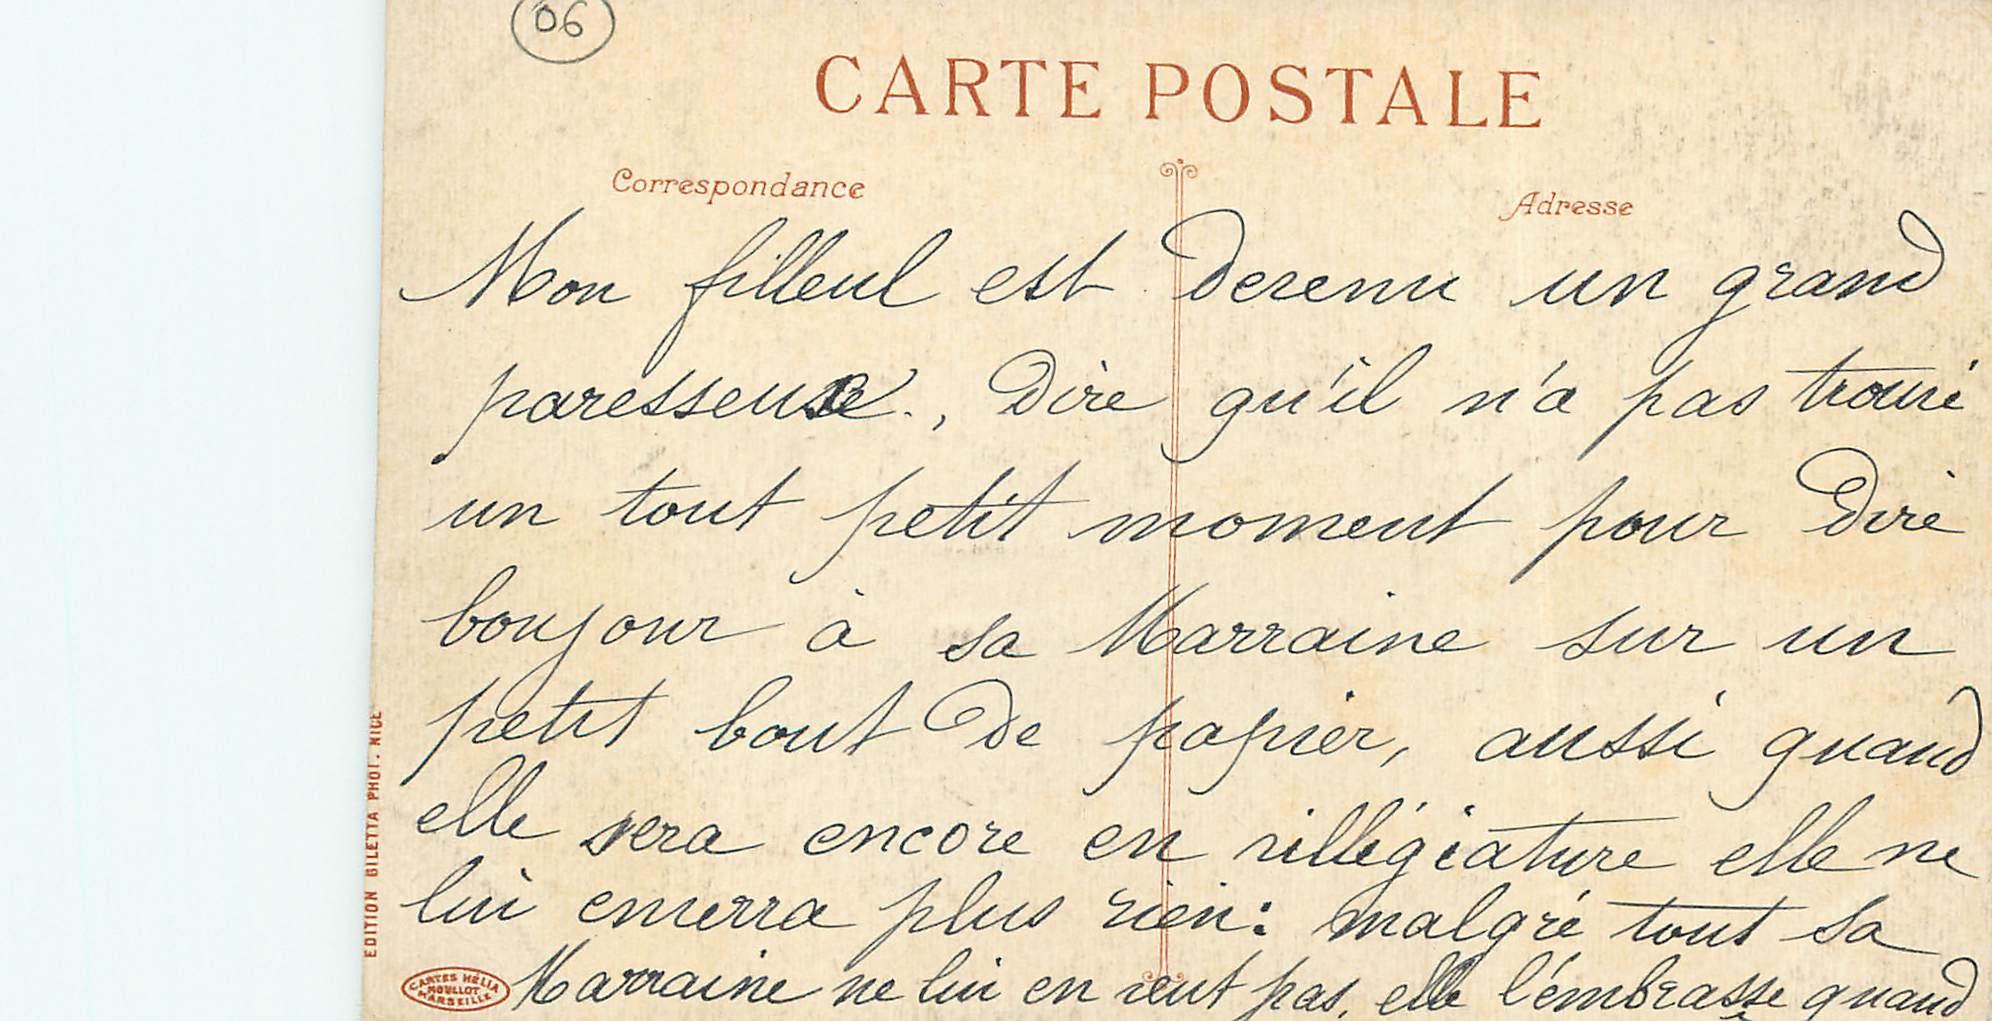 06
CARTE POSTALE
Correspondance
Adresse
Mon filleul est devenu un grand
paresseux., Dire qu'il n'a pas trouvé
un tout petit moment pour dire
boujour à sa Marraine sur un
petit bout de papier, aussi quand
elle sera encore en villégiature elle ne
lui enverra plus rien: malgré tout sa
Marraine ne lui en veut pas, elle l'embrasse quand
EDITION GILETTA PHOT. NICE
CARTES HÉLIA
MOULLOT
MARSEILLE